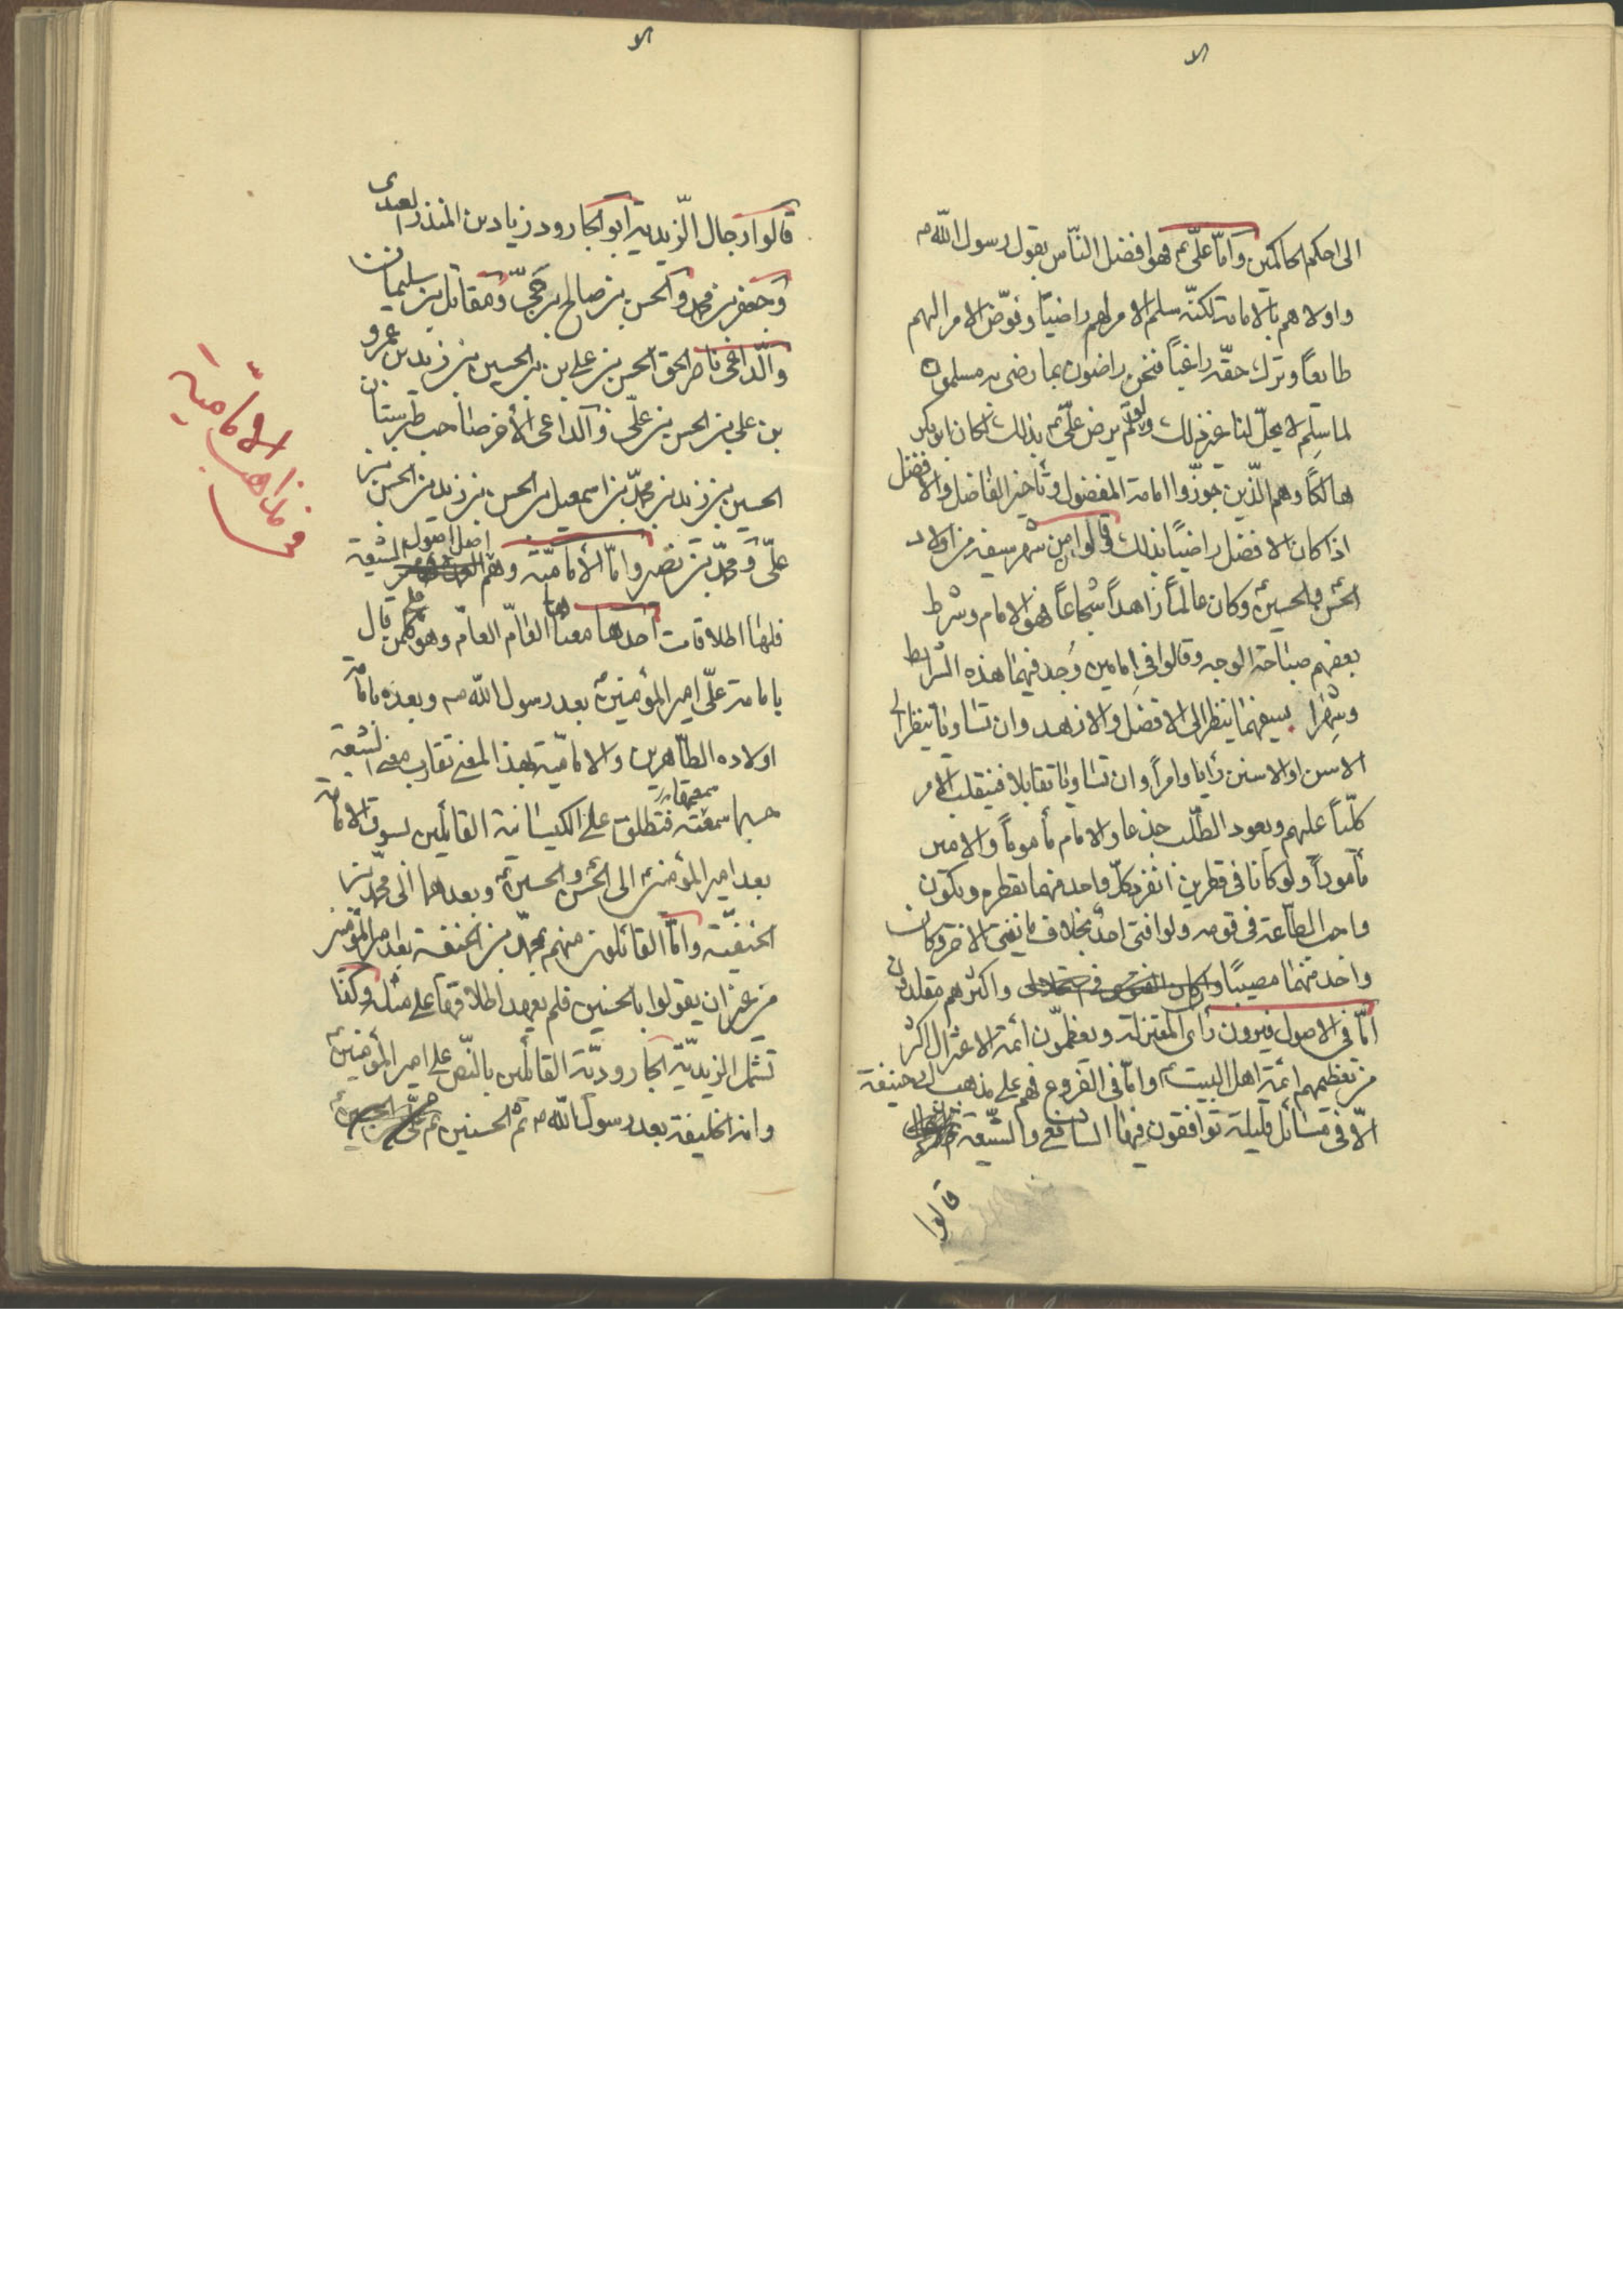 الى احكم الحاكمين وامّا علىّ ع فهو افضل النّاس بقول رسول اللّه ص
واولاهم بالامامة لكنّه سلم الامر لهم راضياً وفوّض الامر اليهم
طايعاً وترك حقّه راغباً فنحن راضون بما رضى به مسلمون
لما سلم لا يحلّ لنا غير ذلك ولو لم يرض علىّ ع بذلك لكان ابوبكر
هالكاً وهم الّذين جوّزوا امامة المفضول وتأخير الفاضل والافضل
اذا كان الافضل راضياً بذلك قالوا من شهر سيفه من اولاد
الحسن والحسين ع وكان عالماً زاهداً شجاعاً فهو الامام وشرط
بعضهم صباحة الوجه وقالوا فى امامين وجد فيهما هذه الشرايط
وشهرا سيفهما ينظر الى الافضل والازهد وان تساويا ينظر الى
الامتن رأيا وامراً وان تساويا تقابلا فينقلب الامر
كلّياً عليهم ويعود الطّلب جذعا والامام مأموماً والامير
مأموراً ولو كانا فى قطرين انفرد كلّ واحد منهما بقطره ويكون
واجب الطّاعة فى قومه ولو افتى احدٌ بخلاف ما يفتى الاخر وكان
واحد منهما مصيباً واكثرهم مقلدون
امّا فى الاصول فيرون رأى المعتزلة ويعظّمون ائمة الاعتزال اكثر
من تعظيمهم ائمة اهل البيت ع وامّا فى الفروع فهم على مذهب ابى حنيفة
الّا فى مسائل قليلة توافقون فيها الشافعى والشّيعة
قالوا
قالوا رجال الزّيدية ابو الجارود زياد بن المنذر العبدى
وجعفر بن محمد والحسن بن صالح بن حىّ ومقاتل بن سليمان
والدّاعى ناصر الحق الحسن بن على بن الحسين بن زيد بن عمرو
بن على بن الحسن بن علىّ والدّاعى الأخر صاحب طبرستان
الحسين بن زيد بن محمّد بن اسمعيل بن الحسن بن زيد بن الحسن بن
علىّ ومحمّد بن نصر وامّا الأماميّة وهم اصل اصول الشيعة
فلها اطلاقات احدها معناها العامّ العامّ وهو كلّ من قال
بامامة علىّ امير المؤمنين ع بعد رسول اللّه ص وبعده بامامة
اولاده الطّاهرين والاماميّة بهذا المعنى تقارب معنى الشيعة
حسبما سمعته فتطلق على الكيسانية القائلين بسوق الامامة
بعد امير المؤمنين ع الى الحسن والحسين ع وبعدهما الى محمّد بن
الحنفيّة وامّا القائلون منهم بمحمّد بن الحنفية بعد امير المؤمنين
من غير ان يقولوا بالحسنين فلم يعهد اطلاقها على مثله وكذا
تشمل الزيديّة الجاروديّة القائلين بالنّص على امير المؤمنين ع
وانه الخليفة بعد رسول اللّه ص ثم الحسنين ع
فى مذاهب الاماميّة